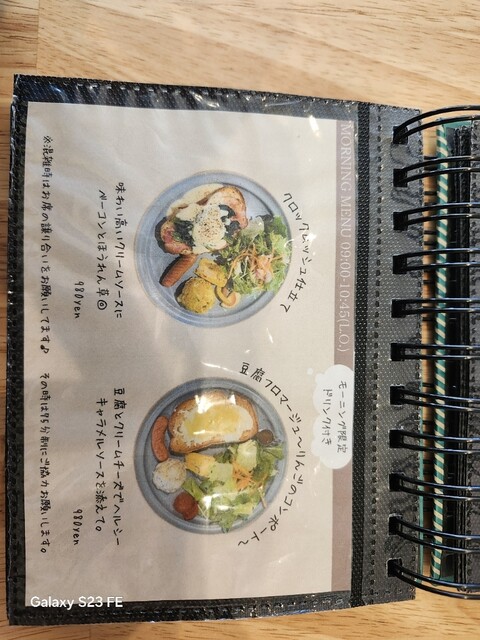 MORNING MENU 09:00-10:45(L.O.)
モーニング限定
ドリンク付き
クロックムッシュ仕立て
味わい高いクリームソースに
ベーコンとほうれん草◎
980yen
豆腐フロマージュ～りんごのコンポート～
豆腐とクリームチーズでヘルシー
キャラメルソースを添えて。
980yen
※混雑時はお席の譲り合いをお願いしてます♪ その時は75分制にご協力お願いします。
Galaxy S23 FE